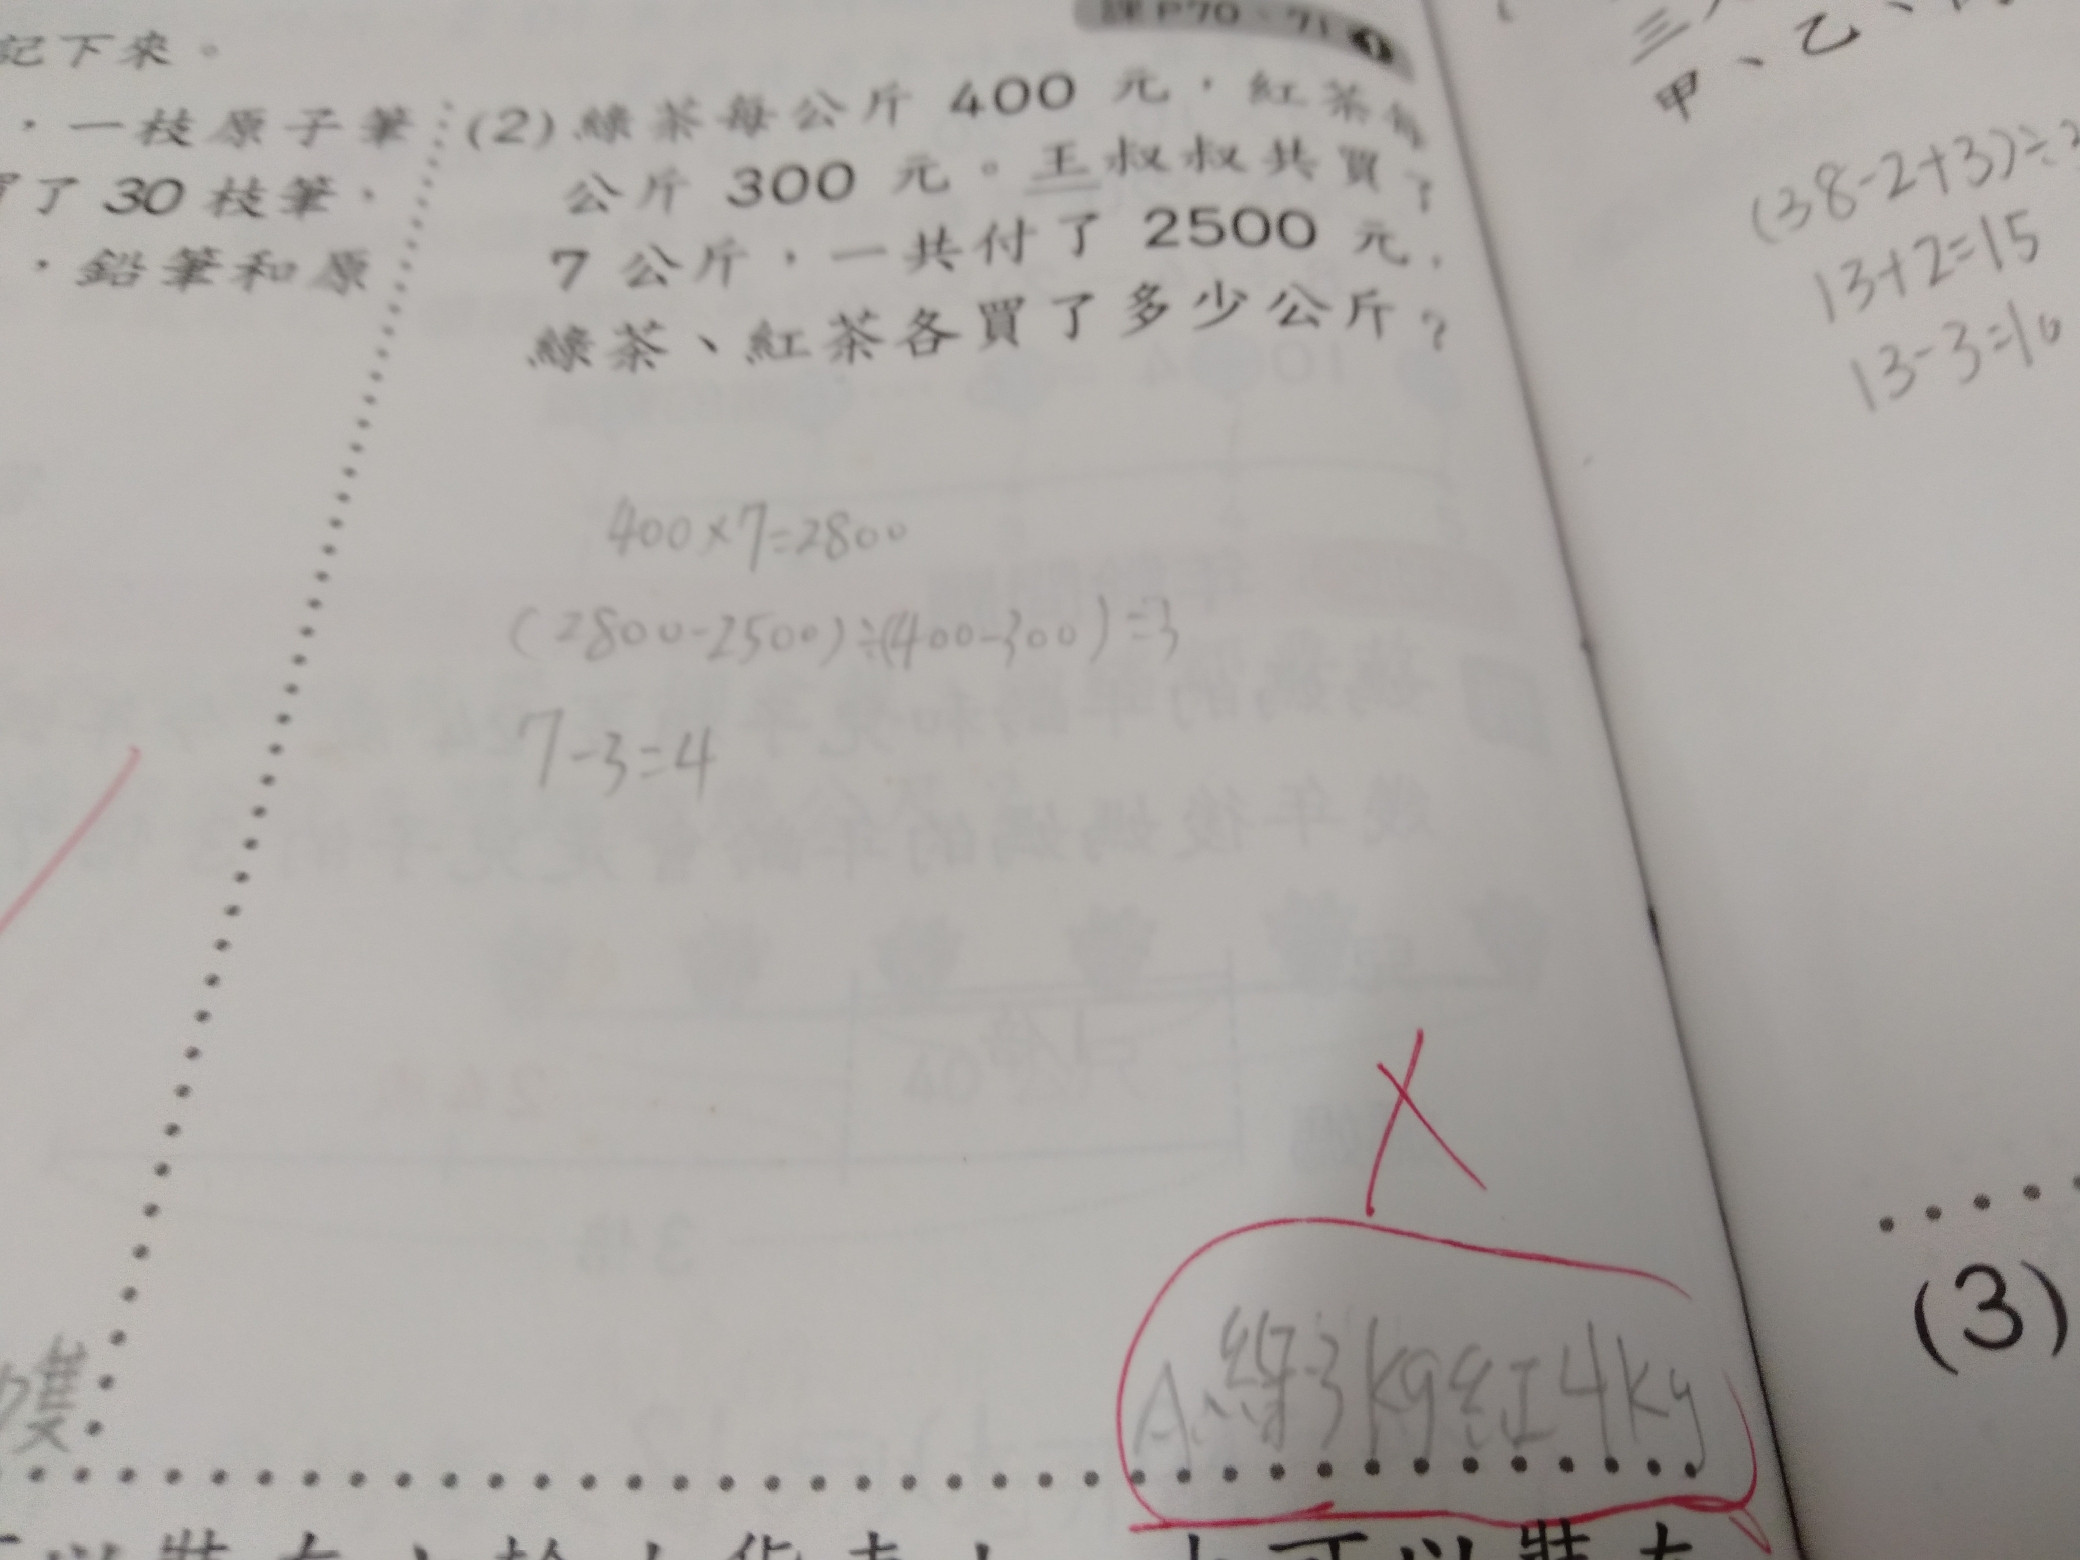 課P70、71 1
記下來。
，一枝原子筆
買了 30 枝筆，
，鉛筆和原
(2) 綠茶每公斤 400 元，紅茶每
公斤 300 元。王叔叔共買了
7 公斤，一共付了 2500 元，
綠茶、紅茶各買了多少公斤？
400×7=2800
(2800-2500)÷(400-300)=3
7-3=4
A:綠3kg紅4kg
甲、乙、
(38-2+3)÷3
13+2=15
13-3=10
(3)